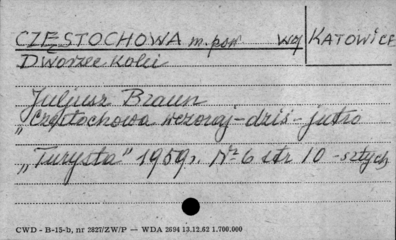 CZĘSTOCHOWA m. pow. woj KATOWICE
Dworzec Kolei
Juljusz Braun
„Częstochowa wczoraj - dziś - jutro
„Turysta" 1959 r. Nr 6 str 10 - sztych
CWD - B-15-b, nr 2827/ZW/P — WDA 2694 13.12.62 1.700.000